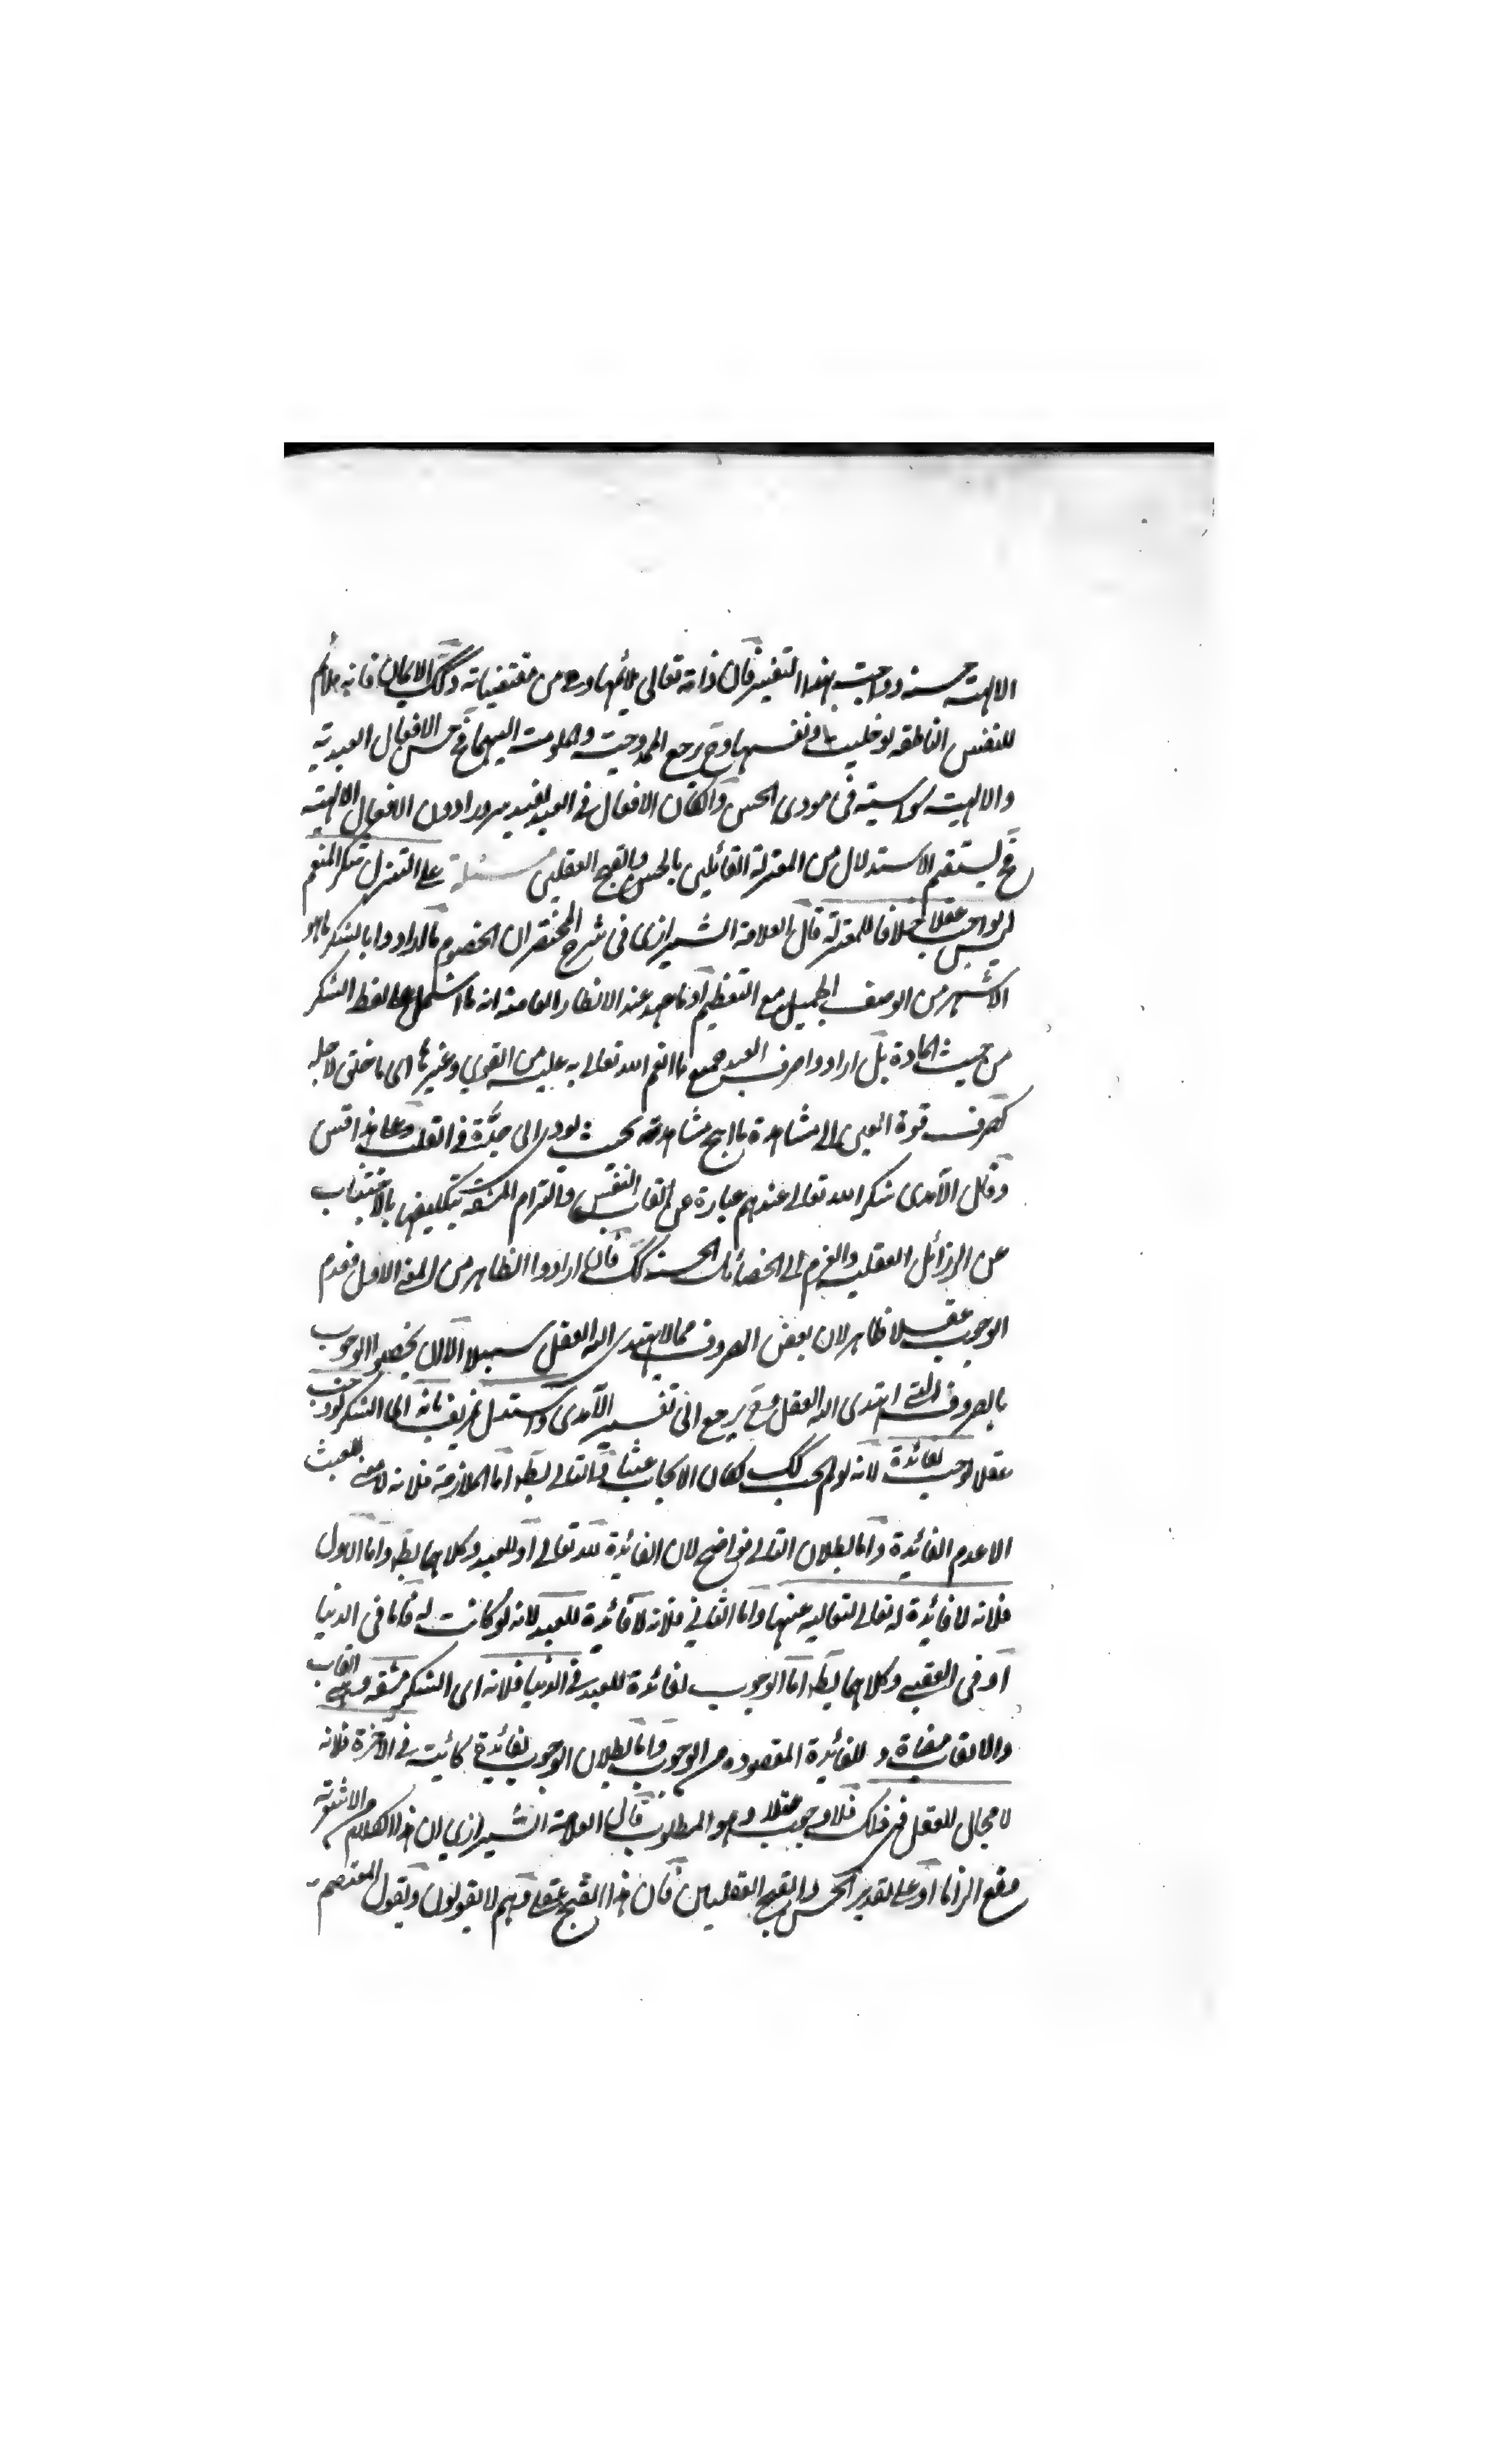 الالهية حسنة وواجبة بهذا التفسير فان ذاته تعالى يلائمها وهي من مقتضياته وكك الايمان فانه ملائم
للنفس الناطقة لو خليت ونفسها وح يرجع الممدوحية والملومية اليهما فح حسن الافعال العبدية
والالهية سواسية في مودى الحسن والكان الافعال في العبد يفيد دون الافعال الالهية
فح يستقيم الاستدلال من المعتزلة القائلين بالحسن والقبح العقلين مسئلة على التنزل شكر المنعم
ليس بواجب عقلا خلافا للمعتزلة قال العلامة الشيرازي في شرح المختصر ان الخصوم ما ارادوا بالشكر ما هو
الاشهر من الوصف الجميل مع التعظيم او ما عهد عند الانظار العامة انه ما اشتمل على لفظ الشكر
من حيث المادة بل ارادوا صرف العبد جميع ما انعم الله تعالى به عليه من القوى وغيرها الى ما خلق لاجله
كصرف قوة العين الى مشاهدة ما ابيح مشاهدته بحيث يودي الى في القلب وعلى هذا قس
وقال الآمدي شكر الله تعالى عندهم عبارة عن اتعاب النفس والتزام المشقة بتكليفها بالاجتناب
عن الرذائل العقلية والغرم الى الحسنة كك فان ارادوا الظاهر من المعنى الاول فعدم
الوجوب عقلا ظاهر لان بعض الصروف مما لا يهتدي اليه العقل سبيلا الا ان يخصصوا الوجوب
بالصروف التي اهتدى اليه العقل وح يرجع الى تفسير الآمدي واستدل بانه اي الشكر لو وجب
عقلا لوجب لفائدة لانه لو لم يجب كك لكان الايجاب عبثا والتالي بط اما الملازمة فلانه لا معنى للعبث
الا عدم الفائدة واما بطلان التالي فواضح لان الفائدة لله تعالى او للعبد وكلاهما بط واما الاول
فلانه لا فائدة له تعالى لتعاليه عنها واما الثاني فلانه لا فائدة للعبد لانه لو كانت له فاما في الدنيا
او في العقبى وكلاهما بط اما الوجوب لفائدة للعبد في الدنيا فلانه اي الشكر مشقة وهي اتعاب
والاتعاب مضادة للفائدة المقصودة من الوجوب واما بطلان الوجوب لفائدة كائنة في الآخرة فلانه
لا مجال للعقل في ذلك فلا وجوب عقلا وهو المطلوب قال العلامة الشيرازي ان هذا الكلام من الاشعرية
وقع الزاما او على تقدير الحسن والقبح العقليين فان هذا القبح عقلي وهم لا يقولون ويقول المعتصم